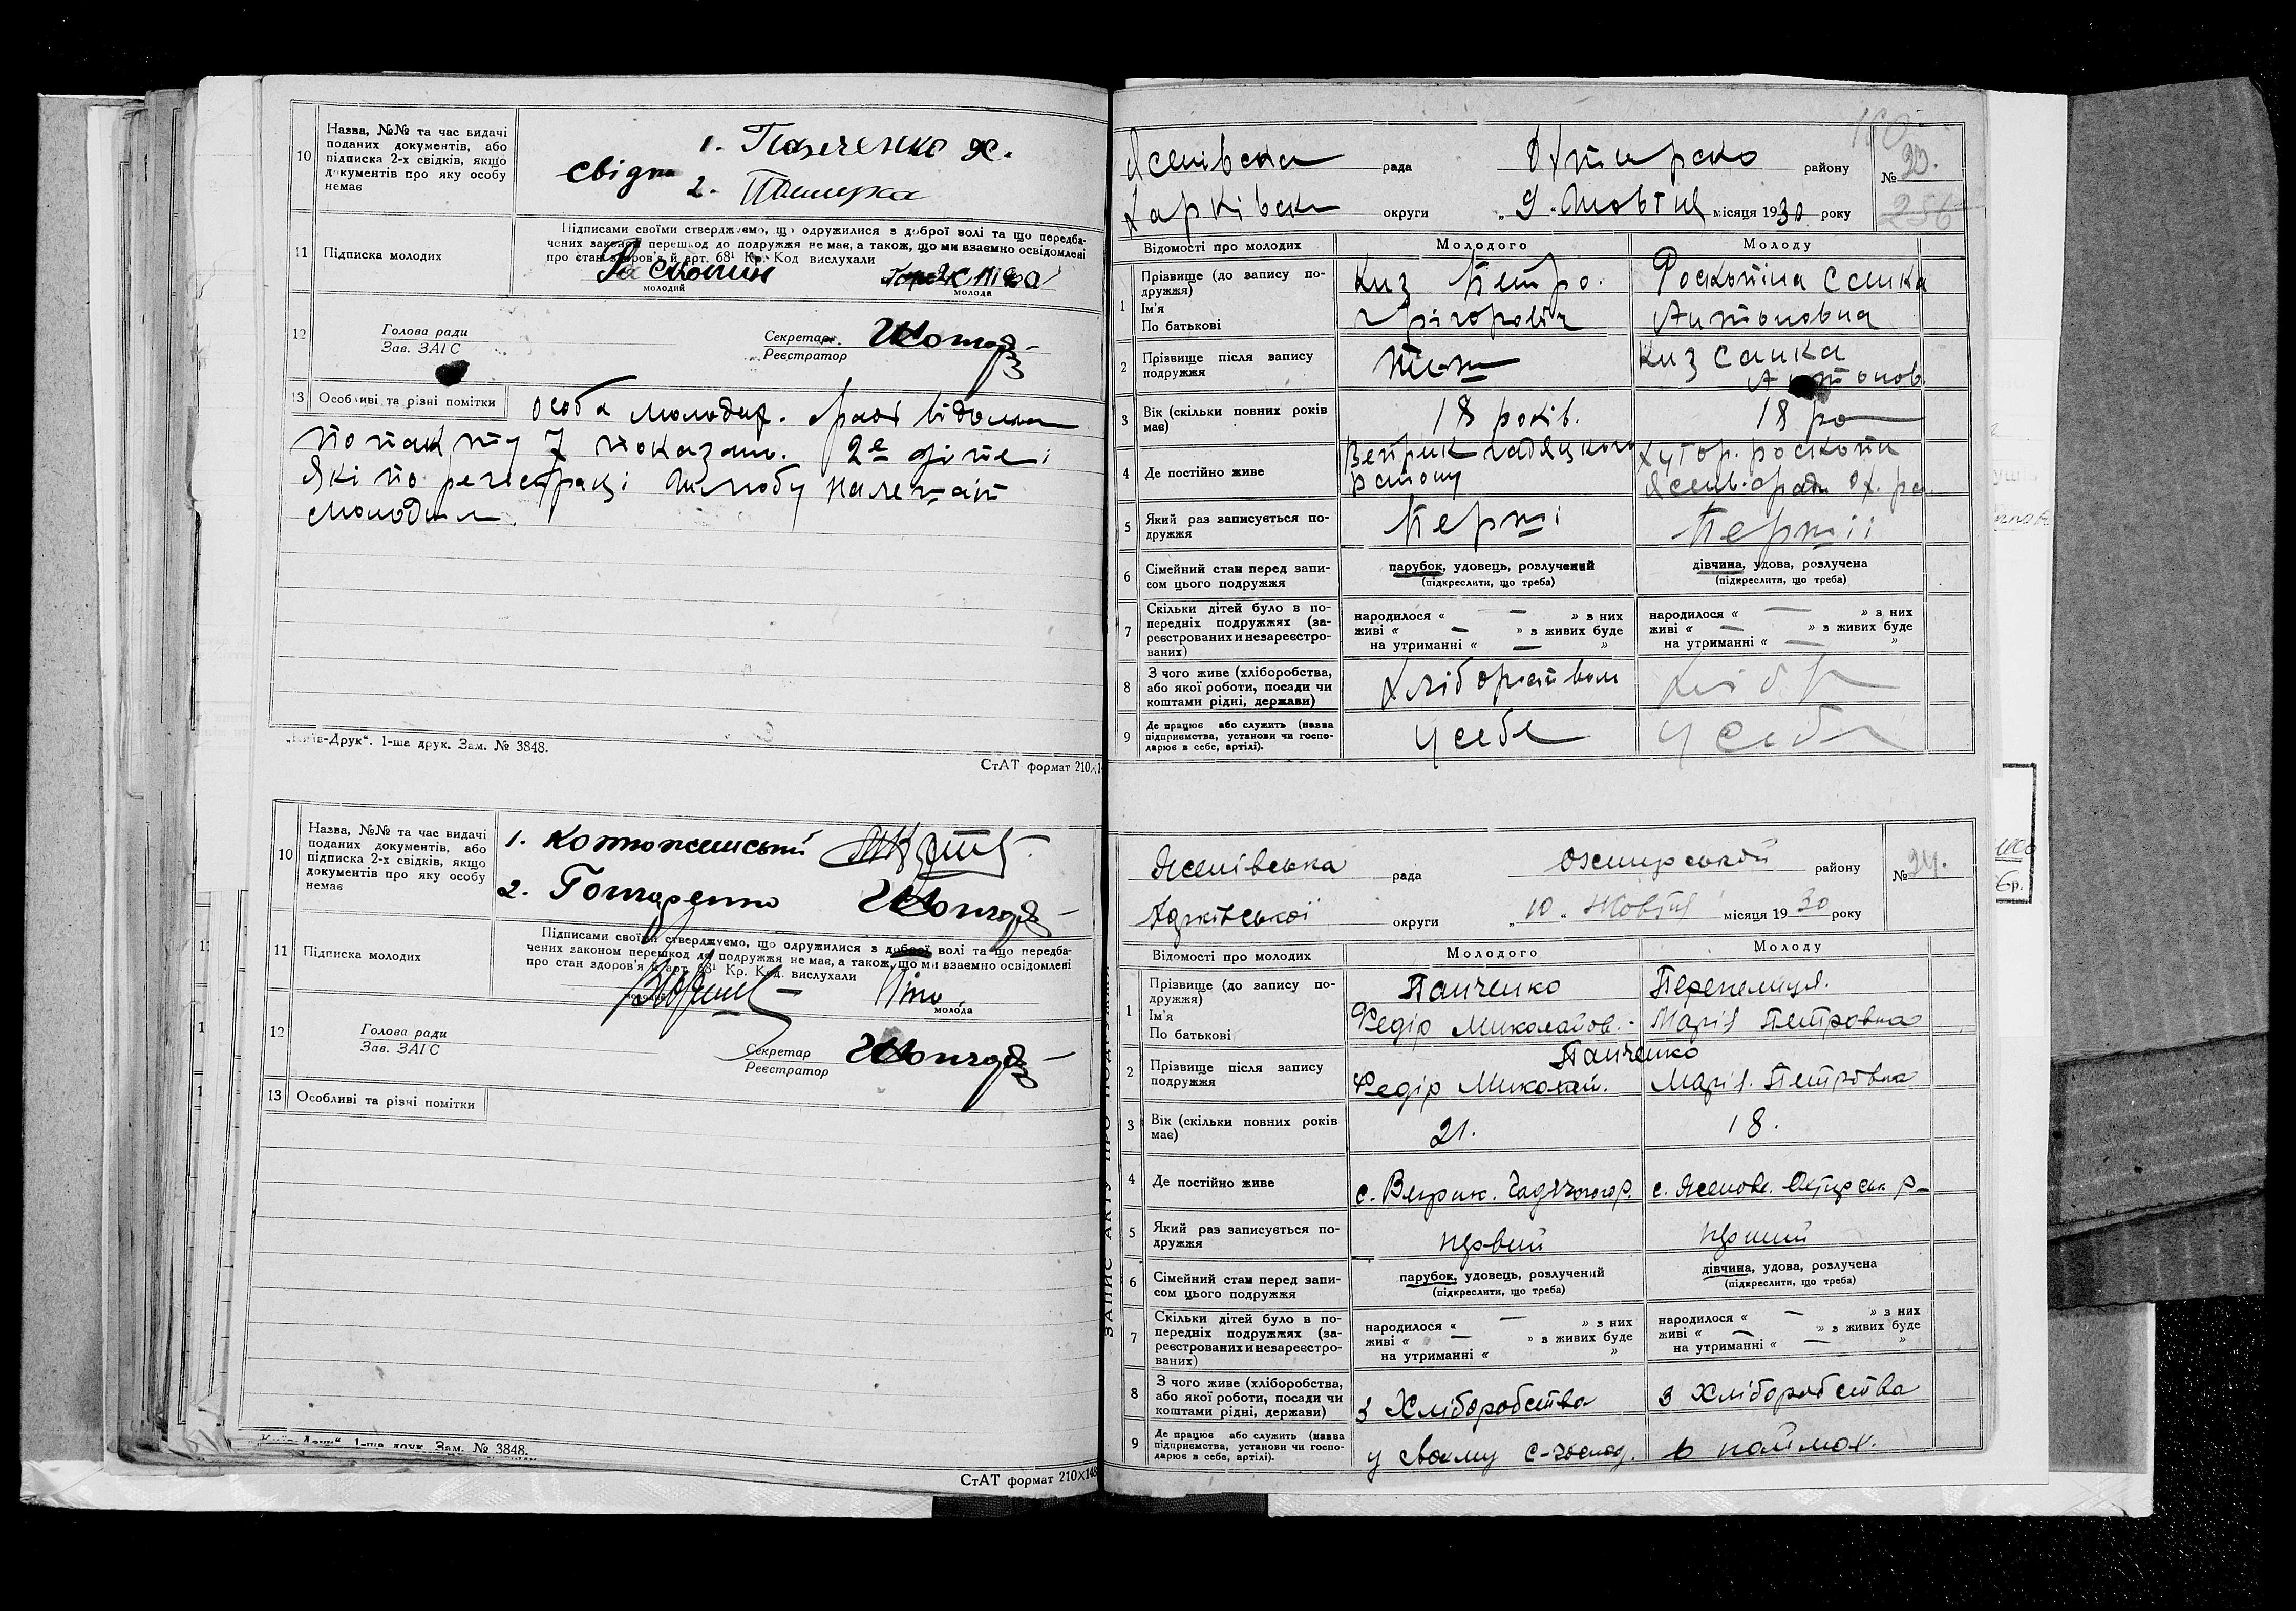 10 Назва, №№ та час видачі
поданих документів, або
підписка 2-х свідків, якщо
документів про яку особу
немає
1.
свідки 2.
11 Підписка молодих
Підписами своїми стверджуємо, що одружилися з доброї волі та що передба-
чених законом перешкод до подружжя не має, а також, що ми взаємно освідомлені
про стан здоров'я й арт. 68¹ Кр. Код вислухали
молодий
молода
12 Голова ради
Зав. ЗАГС
Секретарь
Реєстратор
13 Особливі та різні помітки
особа молодих раді відома
по пакту 7 показано. 2е діте
Які по регістраці шлюбу належат
молодим.
„Київ-Друк“. 1-ша друк. Зам. № 3848.
СтАТ формат 210×1
10 Назва, №№ та час видачі
поданих документів, або
підписка 2-х свідків, якщо
документів про яку особу
немає
1.
2. Гончаренко
11 Підписка молодих
Підписами своїми стверджуємо, що одружилися з доброї волі та що передба-
чених законом перешкод до подружжя не має, а також, що ми взаємно освідомлені
про стан здоров'я й арт. 68¹ Кр. Код вислухали
молода
12 Голова ради
Зав. ЗАГС
Секретар
Реєстратор
13 Особливі та різні помітки
„Київ-Друк“ 1-ша друк. Зам. № 3848.
СтАТ формат 210×148
ЗАПИС АКТУ ПРО ПОДРУЖЖЯ
160
Ясенівська рада Охтирско району № 23.
Харківськ округи „ 9 “ Жовтня місяця 1930 року 256
Відомості про молодих Молодого Молоду
1 Прізвище (до запису по-
дружжя)
Ім'я
По батькові
Киз Петро.
Грігоровіч
Роскотіна Санка
Антоновна
2 Прізвище після запису
подружжя
теж
Киз Санка
Антонов.
3 Вік (скільки повних років
має)
18 років.
18 ро
4 Де постійно живе
Веприк Гадяцкого
Району
Хутор. роскоти
Ясенів. ради Ох. ра.
5 Який раз записується по-
дружжя
Перші
Першіі
6 Сімейний стан перед запи-
сом цього подружжя
парубок, удовець, розлучений
(підкреслити, що треба)
дівчина, удова, розлучена
(підкреслити, що треба)
7 Скільки дітей було в по-
передніх подружжях (за-
реєстрованих и незареєстро-
ваних)
народилося « — » з них
живі « — » з живих буде
на утриманні « — »
народилося « — » з них
живі « — » з живих буде
на утриманні « — »
8 З чого живе (хліборобства,
або якої роботи, посади чи
коштами рідні, держави)
Хліборобством
Хлібор
9 Де працює або служить (назва
підприємства, установи чи госпо-
дарює в себе, артілі).
У себе
У себе
Ясенівська рада Охтирської району № 24.
Харківської округи „ 10 “ Жовтня місяця 1930 року
Відомості про молодих Молодого Молоду
1 Прізвище (до запису по-
дружжя)
Ім'я
По батькові
Панченко
Федір Миколайов.
Перепелиця.
Марія Петровна
2 Прізвище після запису
подружжя
Панченко
Федір Миколай. Марія. Петровна
3 Вік (скільки повних років
має)
21.
18.
4 Де постійно живе
с. Веприк. Гадяцького р.
с. Ясенове. Охтирськ р
5 Який раз записується по-
дружжя
первий
перший
6 Сімейний стан перед запи-
сом цього подружжя
парубок, удовець, розлучений
(підкреслити, що треба)
дівчина, удова, розлучена
(підкреслити, що треба)
7 Скільки дітей було в по-
передніх подружжях (за-
реєстрованих и незареєстро-
ваних)
народилося « — » з них
живі « — » з живих буде
на утриманні « »
народилося « — » з них
живі « — » з живих буде
на утриманні « — »
8 З чого живе (хліборобства,
або якої роботи, посади чи
коштами рідні, держави)
з Хліборобства
з Хліборобства
9 Де працює або служить (назва
підприємства, установи чи госпо-
дарює в себе, артілі).
у своєму с-господ.
в наймах.